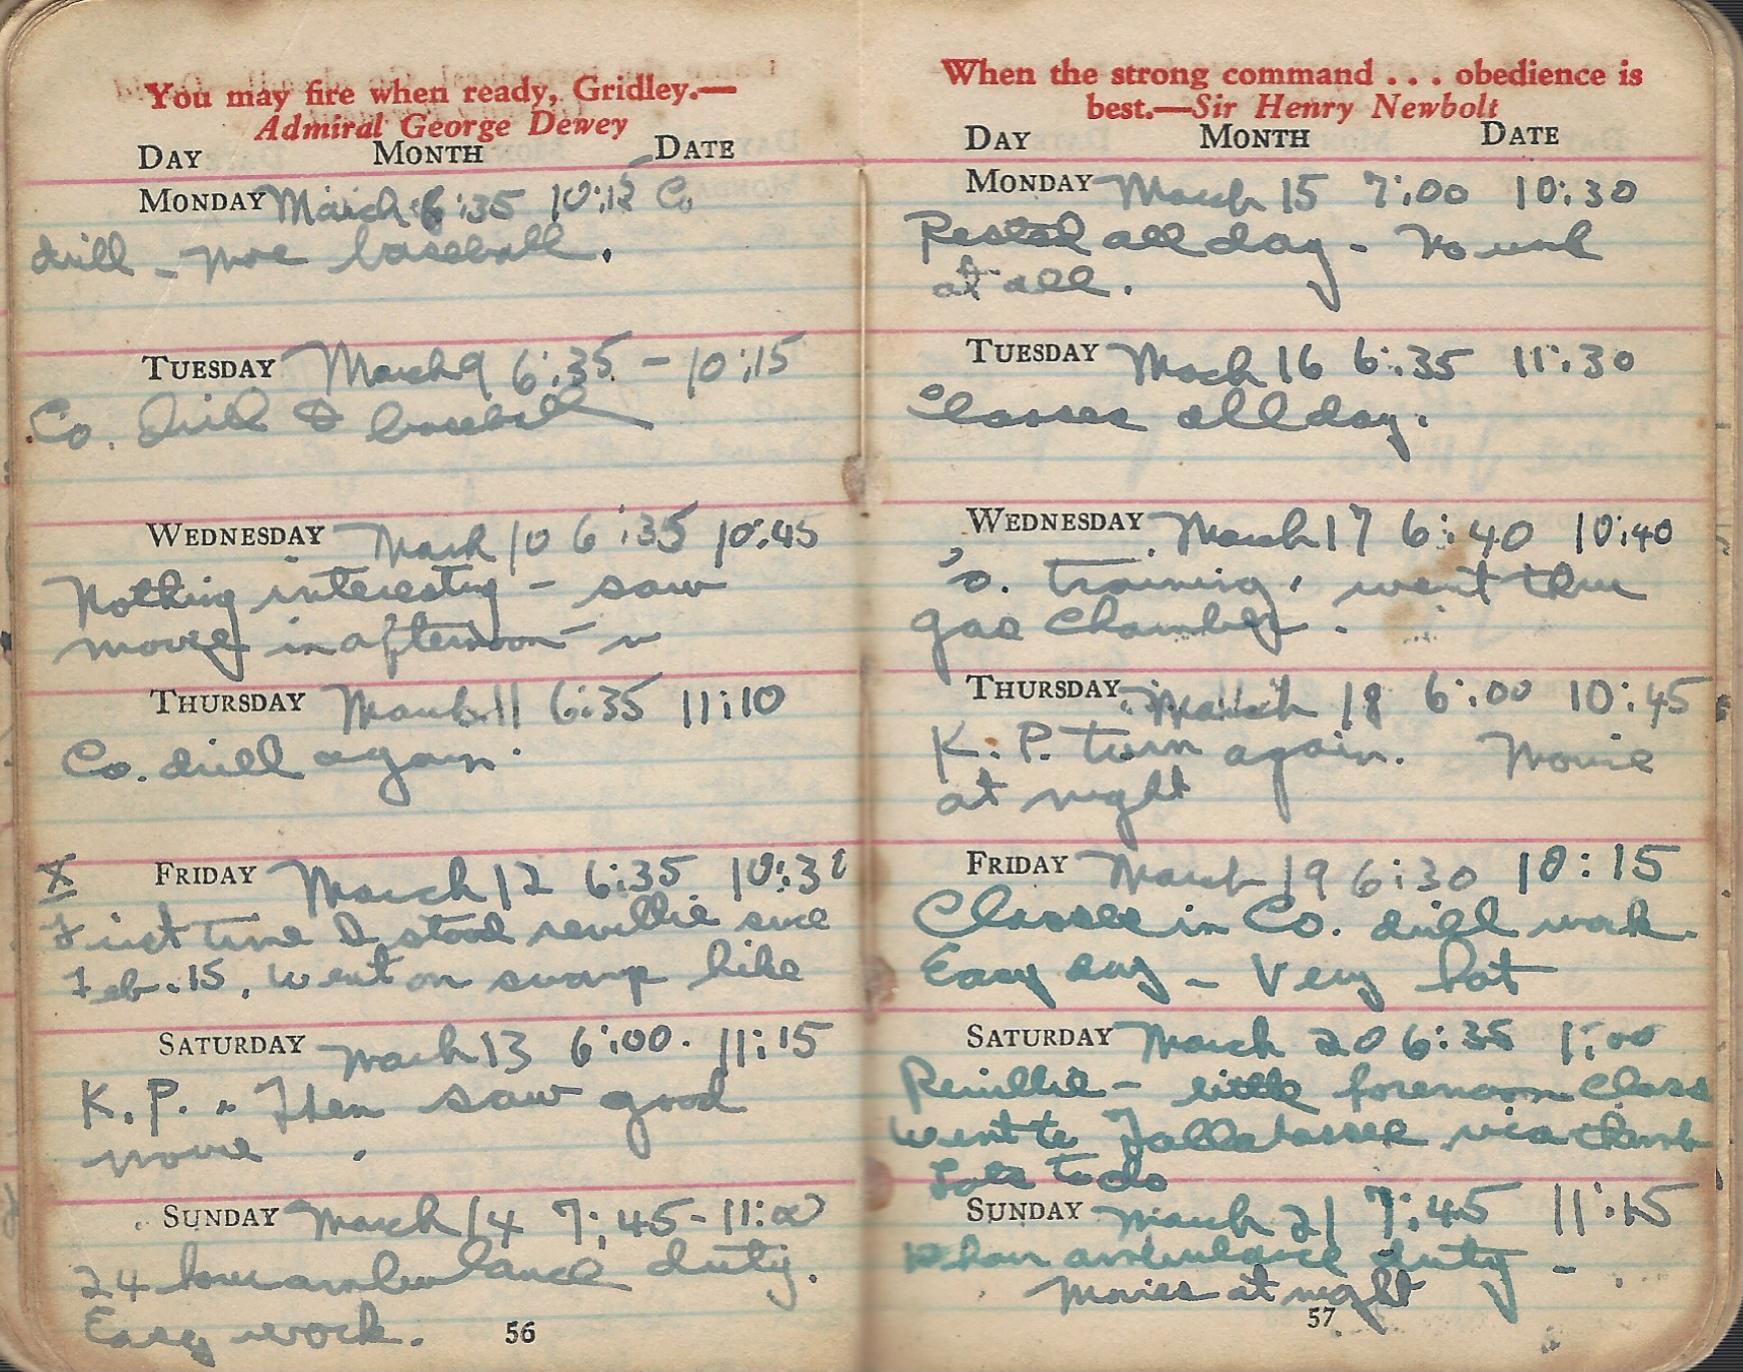 You may fire when ready, Gridley.—
Admiral George Dewey
DAY MONTH DATE
MONDAY March 8 6:35 10:15 Co
drill - more baseball.
TUESDAY March 9 6:35 - 10:15
Co. drill & baseball
WEDNESDAY March 10 6:35 10:45
Nothing interesting - saw
movie in afternoon -
THURSDAY March 11 6:35 11:10
Co. drill again.
X FRIDAY March 12 6:35 10:30
First time I stood reveillie since
Feb. 15. Went on swamp hike
SATURDAY March 13 6:00. 11:15
K.P. - Then saw good
movie.
SUNDAY March 14 7:45-11:00
24 hour ambulance duty.
Easy work.
56
When the strong command . . . obedience is
best.—Sir Henry Newbolt
DAY MONTH DATE
MONDAY March 15 7:00 10:30
Rested all day - No work
at all.
TUESDAY March 16 6:35 11:30
Classes all day.
WEDNESDAY March 17 6:40 10:40
Co. training, went thru
gas chamber.
THURSDAY March 18 6:00 10:45
K.P. turn again. Movie
at night
FRIDAY March 19 6:30 10:15
Classes in Co. drill work.
Easy day - Very hot
SATURDAY March 20 6:35 1:00
Revillie - little forenoon class
Went to Tallahassee via thumb
Lots to do
SUNDAY March 21 7:45 11:15
hour ambulance duty -
Movies at night
57